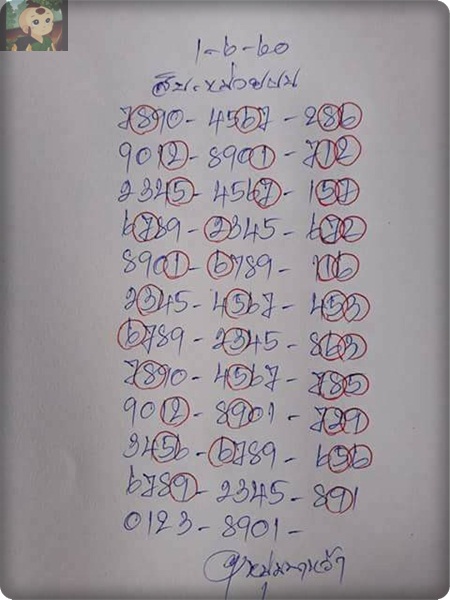 1-6-60
7890 - 4567 - 286
9012 - 8901 - 712
2345 - 4567 - 157
6789 - 2345 - 672
8901 - 6789 - 106
2345 - 4567 - 453
6789 - 2345 - 863
7890 - 4567 - 785
9012 - 8901 - 729
3456 - 6789 - 656
6789 - 2345 - 891
0123 - 8901 -